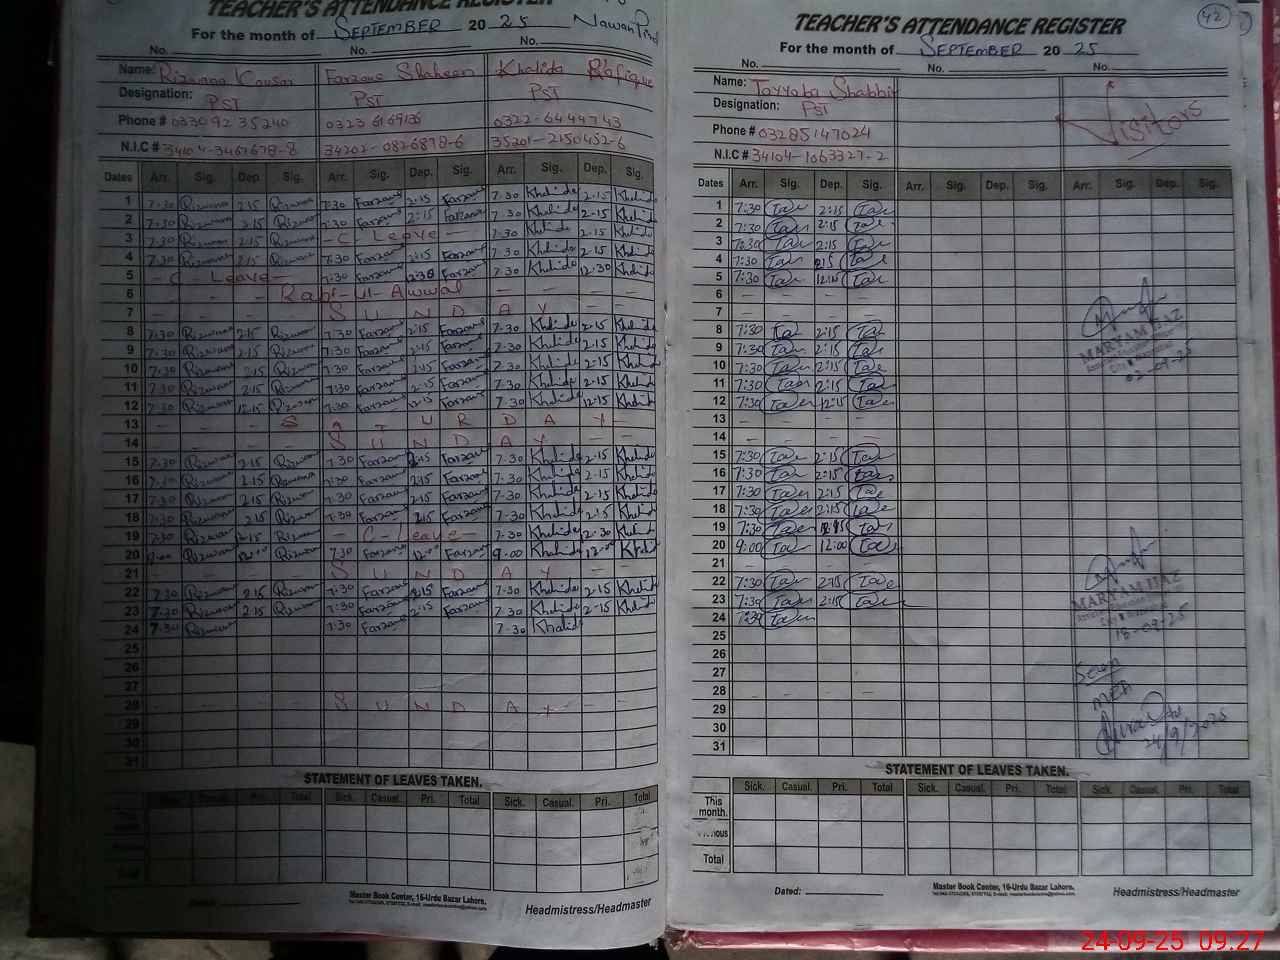 TEACHER'S ATTENDANCE REGISTER
For the month of SEPTEMBER 2025 Nawan Pind
No. No. No.
Name: Rizwana Kausar Farzana Shaheen Khalida Rafique
Designation: PST PST PST
Phone # 03309235240 0323 6169136 0322-6444743
N.I.C # 34104-3467678-8 34202-0826878-6 35201-2150452-6
Dates Arr. Sig. Dep. Sig. Arr. Sig. Dep. Sig. Arr. Sig. Dep. Sig.
1 7:30 Rizwana 2:15 Rizwana 7:30 Farzana 2:15 Farzana 7:30 Khalida 2:15 Khalida
2 7:30 Rizwana 2:15 Rizwana 7:30 Farzana 2:15 Farzana 7:30 Khalida 2:15 Khalida
3 7:30 Rizwana 2:15 Rizwana - C - Leave - 7:30 Khalida 2:15 Khalida
4 7:30 Rizwana 2:15 Rizwana 7:30 Farzana 2:15 Farzana 7:30 Khalida 2:15 Khalida
5 - C - Leave - 7:30 Farzana 12:30 Farzana 7:30 Khalida 12:30 Khalida
6 - - - Rabi-ul-Awwal - - - -
7 - - - - S U N D A Y - -
8 7:30 Rizwana 2:15 Rizwana 7:30 Farzana 2:15 Farzana 7:30 Khalida 2:15 Khalida
9 7:30 Rizwana 2:15 Rizwana 7:30 Farzana 2:15 Farzana 7:30 Khalida 2:15 Khalida
10 7:30 Rizwana 2:15 Rizwana 7:30 Farzana 2:15 Farzana 7:30 Khalida 2:15 Khalida
11 7:30 Rizwana 2:15 Rizwana 7:30 Farzana 2:15 Farzana 7:30 Khalida 2:15 Khalida
12 7:30 Rizwana 12:15 Rizwana 7:30 Farzana 12:15 Farzana 7:30 Khalida 12:15 Khalida
13 - - - S A T U R D A Y -
14 - - - - S U N D A Y - -
15 7:30 Rizwana 2:15 Rizwana 7:30 Farzana 2:15 Farzana 7:30 Khalida 2:15 Khalida
16 7:30 Rizwana 2:15 Rizwana 7:30 Farzana 2:15 Farzana 7:30 Khalida 2:15 Khalida
17 7:30 Rizwana 2:15 Rizwana 7:30 Farzana 2:15 Farzana 7:30 Khalida 2:15 Khalida
18 7:30 Rizwana 2:15 Rizwana 7:30 Farzana 2:15 Farzana 7:30 Khalida 2:15 Khalida
19 7:30 Rizwana 12:15 Rizwana - C - Leave - 7:30 Khalida 12:30 Khalida
20 9:00 Rizwana 12:00 Rizwana 7:30 Farzana 12:00 Farzana 9:00 Khalida 12:00 Khalida
21 - - - - S U N D A Y - -
22 7:30 Rizwana 2:15 Rizwana 7:30 Farzana 2:15 Farzana 7:30 Khalida 2:15 Khalida
23 7:30 Rizwana 2:15 Rizwana 7:30 Farzana 2:15 Farzana 7:30 Khalida 2:15 Khalida
24 7:30 Rizwana 7:30 Farzana 7:30 Khalida
25
26
27
28 S U N D A Y
29
30
31
STATEMENT OF LEAVES TAKEN.
Total Sick. Casual. Pri. Total Sick. Casual. Pri. Total
Master Book Center, 16-Urdu Bazar Lahore.
Headmistress/Headmaster
42
TEACHER'S ATTENDANCE REGISTER
For the month of SEPTEMBER 2025
No. No. No.
Name: Tayyaba Shabbir
Designation: PST
Visitors
Phone # 03285147024
N.I.C # 34104-1063327-2
Dates Arr. Sig. Dep. Sig. Arr. Sig. Dep. Sig. Arr. Sig. Dep. Sig.
1 7:30 Tae 2:15 Tae
2 7:30 Tae 2:15 Tae
3 7:30 Tae 2:15 Tae
4 7:30 Tae 2:15 Tae
5 7:30 Tae 12:15 Tae
6 - - - -
7 - - - -
8 7:30 Tae 2:15 Tae
9 7:30 Tae 2:15 Tae
10 7:30 Tae 2:15 Tae
11 7:30 Tae 2:15 Tae
12 7:30 Tae 12:15 Tae
13 - - - -
14 - - - -
15 7:30 Tae 2:15 Tae
16 7:30 Tae 2:15 Tae
17 7:30 Tae 2:15 Tae
18 7:30 Tae 2:15 Tae
19 7:30 Tae 12:15 Tae
20 9:00 Tae 12:00 Tae
21 - - - -
22 7:30 Tae 2:15 Tae
23 7:30 Tae 2:15 Tae
24 7:30 Tae
25
26
27
28 - - - -
29
30
31
MARYAM IJAZ
02-09-25
MARYAM IJAZ
18-09-25
Seen
MEA
24/9/2025
STATEMENT OF LEAVES TAKEN.
Sick. Casual. Pri. Total Sick. Casual. Pri. Total Sick. Casual. Pri. Total
This month.
Total
Dated:
Master Book Center, 16-Urdu Bazar Lahore.
Headmistress/Headmaster
24-09-25 09:27